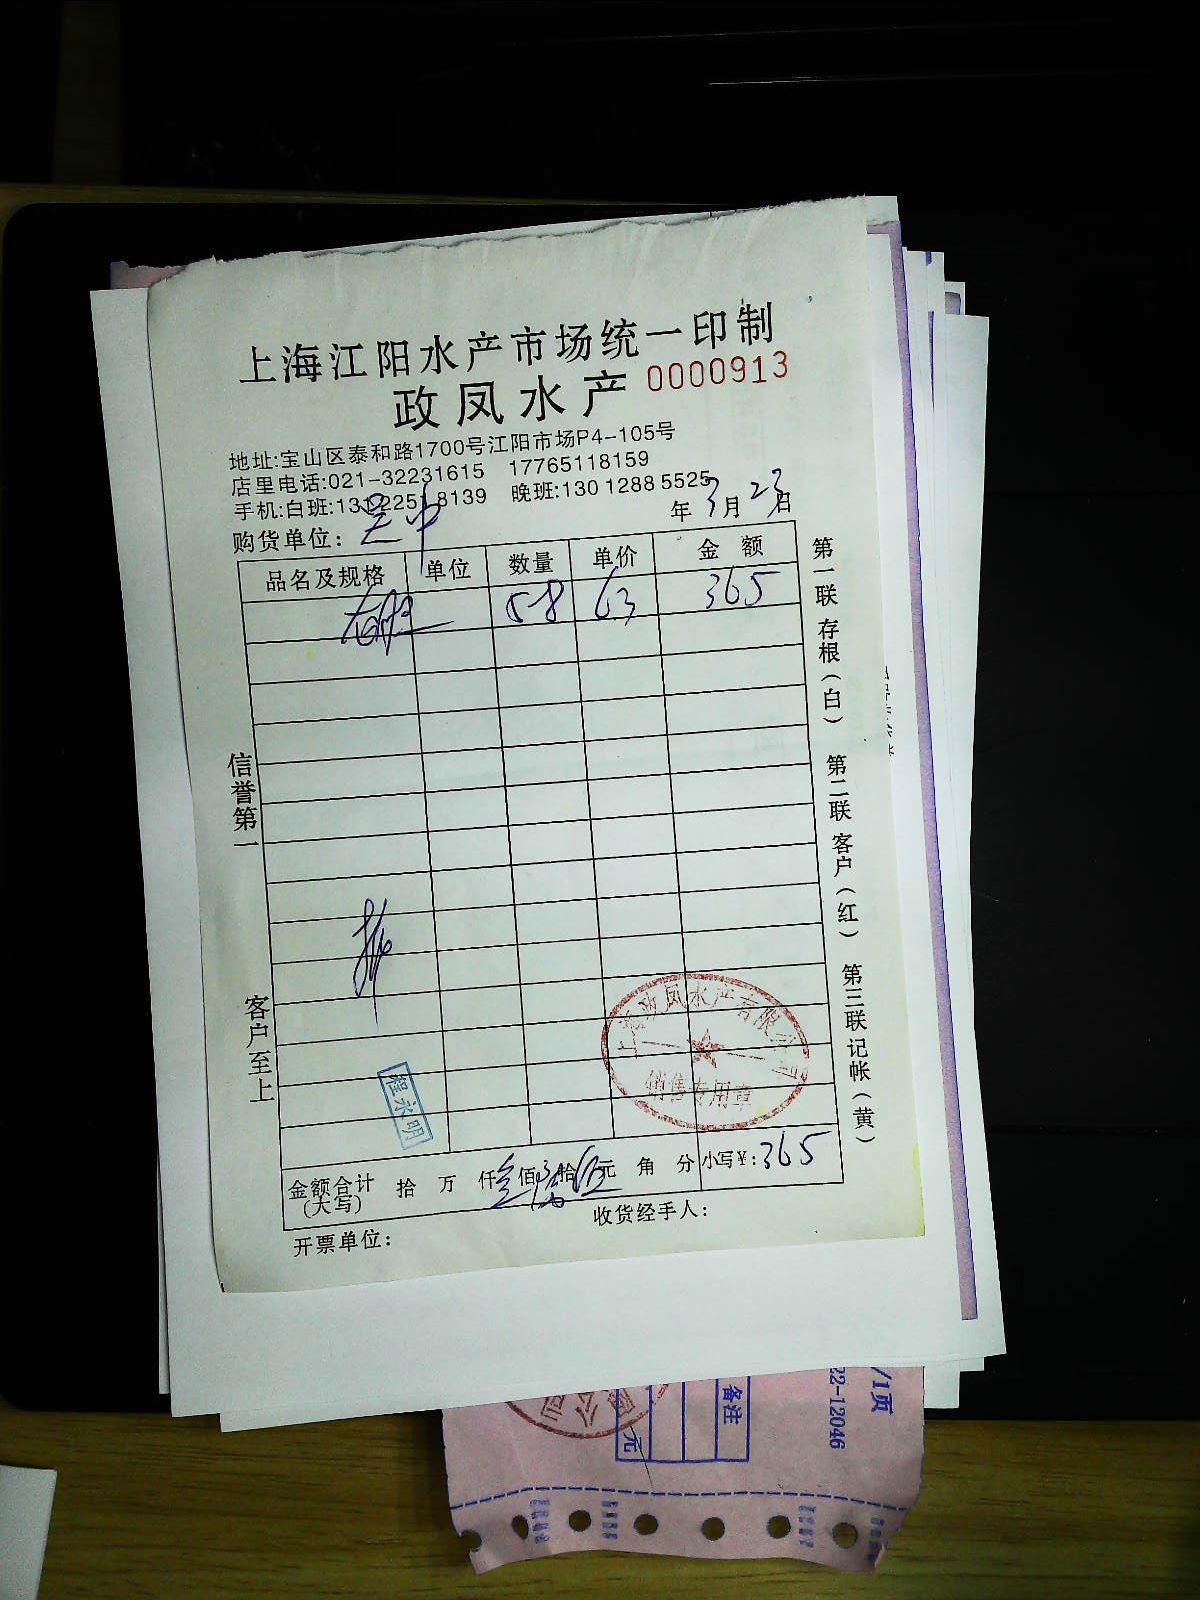 上海江阳水产市场统一印制
政凤水产 0000913
地址:宝山区泰和路1700号江阳市场P4-105号
店里电话:021-32231615 17765118159
手机:白班:131 2251 8139 晚班:130 1288 5525
购货单位: 年 3月23日
品名及规格 单位 数量 单价 金额
58 63 365
信誉第一
客户至上
第一联 存根(白) 第二联 客户(红) 第三联 记帐(黄)
上海政凤水产有限公司
销售专用章
程永明
金额合计 拾 万 仟 佰 拾 元 角 分 小写¥:365
(大写)
收货经手人:
开票单位:
/1页
22-12046
备注
元
公司